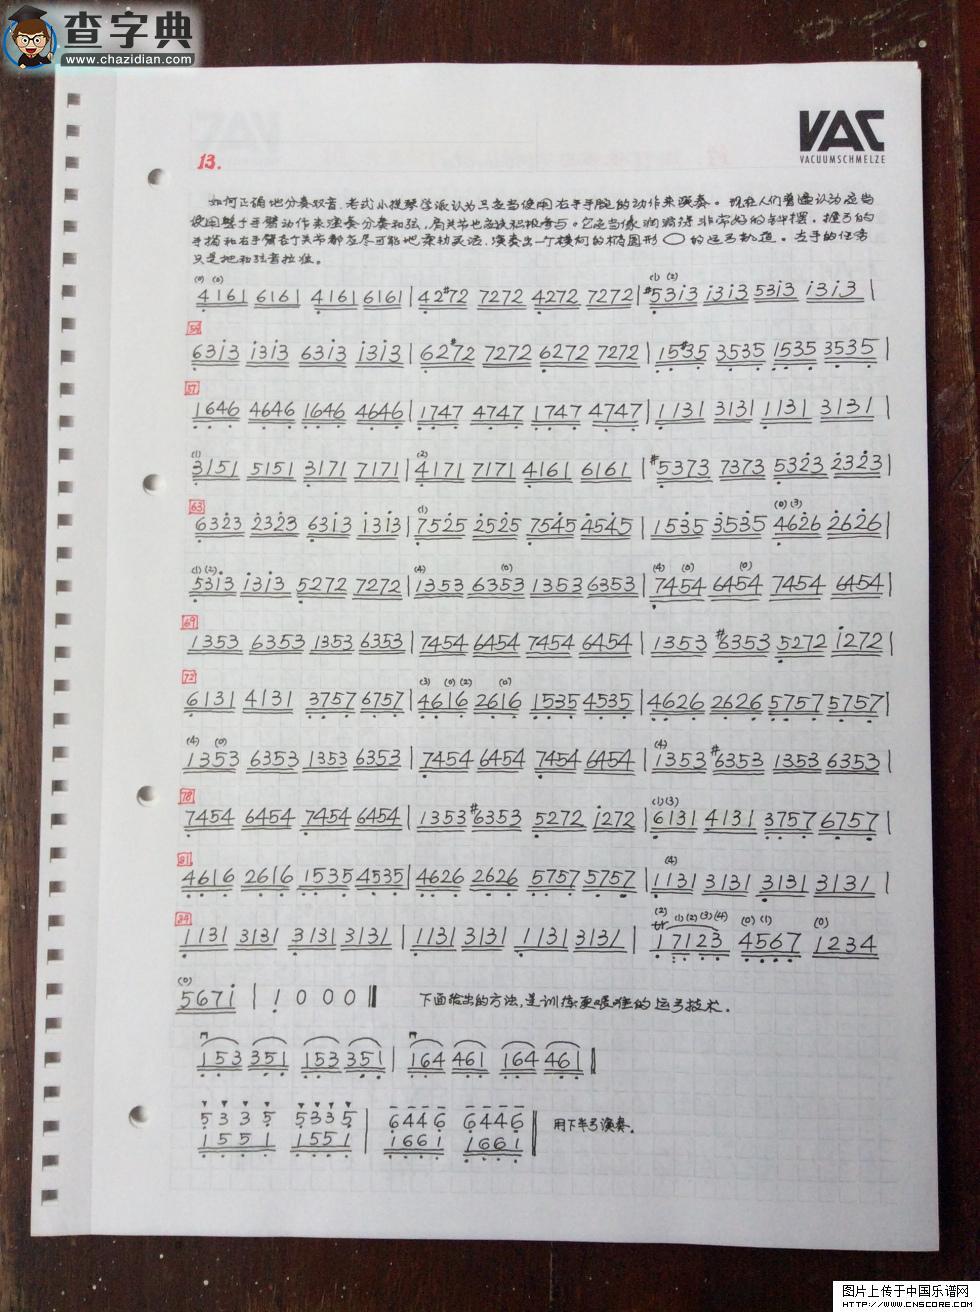 查字典
www.chazidian.com
VAC
VACUUMSCHMELZE
13.
如何正确地分奏双音.老式小提琴学派认为只应当使用右手手腕的动作来演奏。现在人们普遍认为应当
使用整个手臂动作来演奏分奏和弦,肩关节也应该积极参与。它应当像润滑得非常好的钟摆。握弓的
手指和右手臂各个关节都应尽可能地柔韧灵活.演奏出一个横向的椭圆形 的运弓轨道。左手的任务
只是把和弦音按准。
(0) (0) (1) (2)
4161 6161 4161 6161 | 42#72 7272 4272 7272 | #5313 1313 5313 1313 |
54
6313 1313 6313 1313 | 62#72 7272 6272 7272 | 15#35 3535 1535 3535 |
57
1646 4646 1646 4646 | 1747 4747 1747 4747 | 1131 3131 1131 3131 |
(1) (2)
3151 5151 3171 7171 | 4171 7171 4161 6161 | #5373 7373 5323 2323 |
63
(1) (0) (3)
6323 2323 6313 1313 | 7525 2525 7545 4545 | 1535 3535 4626 2626 |
(1) (2) (4) (0) (4) (0) (0)
5313 1313 5272 7272 | 1353 6353 1353 6353 | 7454 6454 7454 6454 |
69
1353 6353 1353 6353 | 7454 6454 7454 6454 | 1353 #6353 5272 1272 |
72
(3) (0) (2) (0)
6131 4131 3757 6757 | 4616 2616 1535 4535 | 4626 2626 5757 5757 |
(4) (0) (4)
1353 6353 1353 6353 | 7454 6454 7454 6454 | 1353 #6353 1353 6353 |
78
(1) (3)
7454 6454 7454 6454 | 1353 #6353 5272 1272 | 6131 4131 3757 6757 |
81
(4)
4616 2616 1535 4535 | 4626 2626 5757 5757 | 1131 3131 3131 3131 |
84
(2) tr (1) (2) (3) (4) (0) (1) (0)
1131 3131 3131 3131 | 1131 3131 1131 3131 | 17123 4567 1234
(0)
5671 | 1 0 0 0 ‖ 下面给出的方法,是训练更艰难的运弓技术。
153 351 153 351 | 164 461 164 461 ‖
5 3 3 5 5 3 3 5 | 6 4 4 6 6 4 4 6 ‖ 用下半弓演奏。
1 5 5 1 1 5 5 1 | 1 6 6 1 1 6 6 1
图片上传于中国乐谱网
HTTP://WWW.CNSCORE.COM